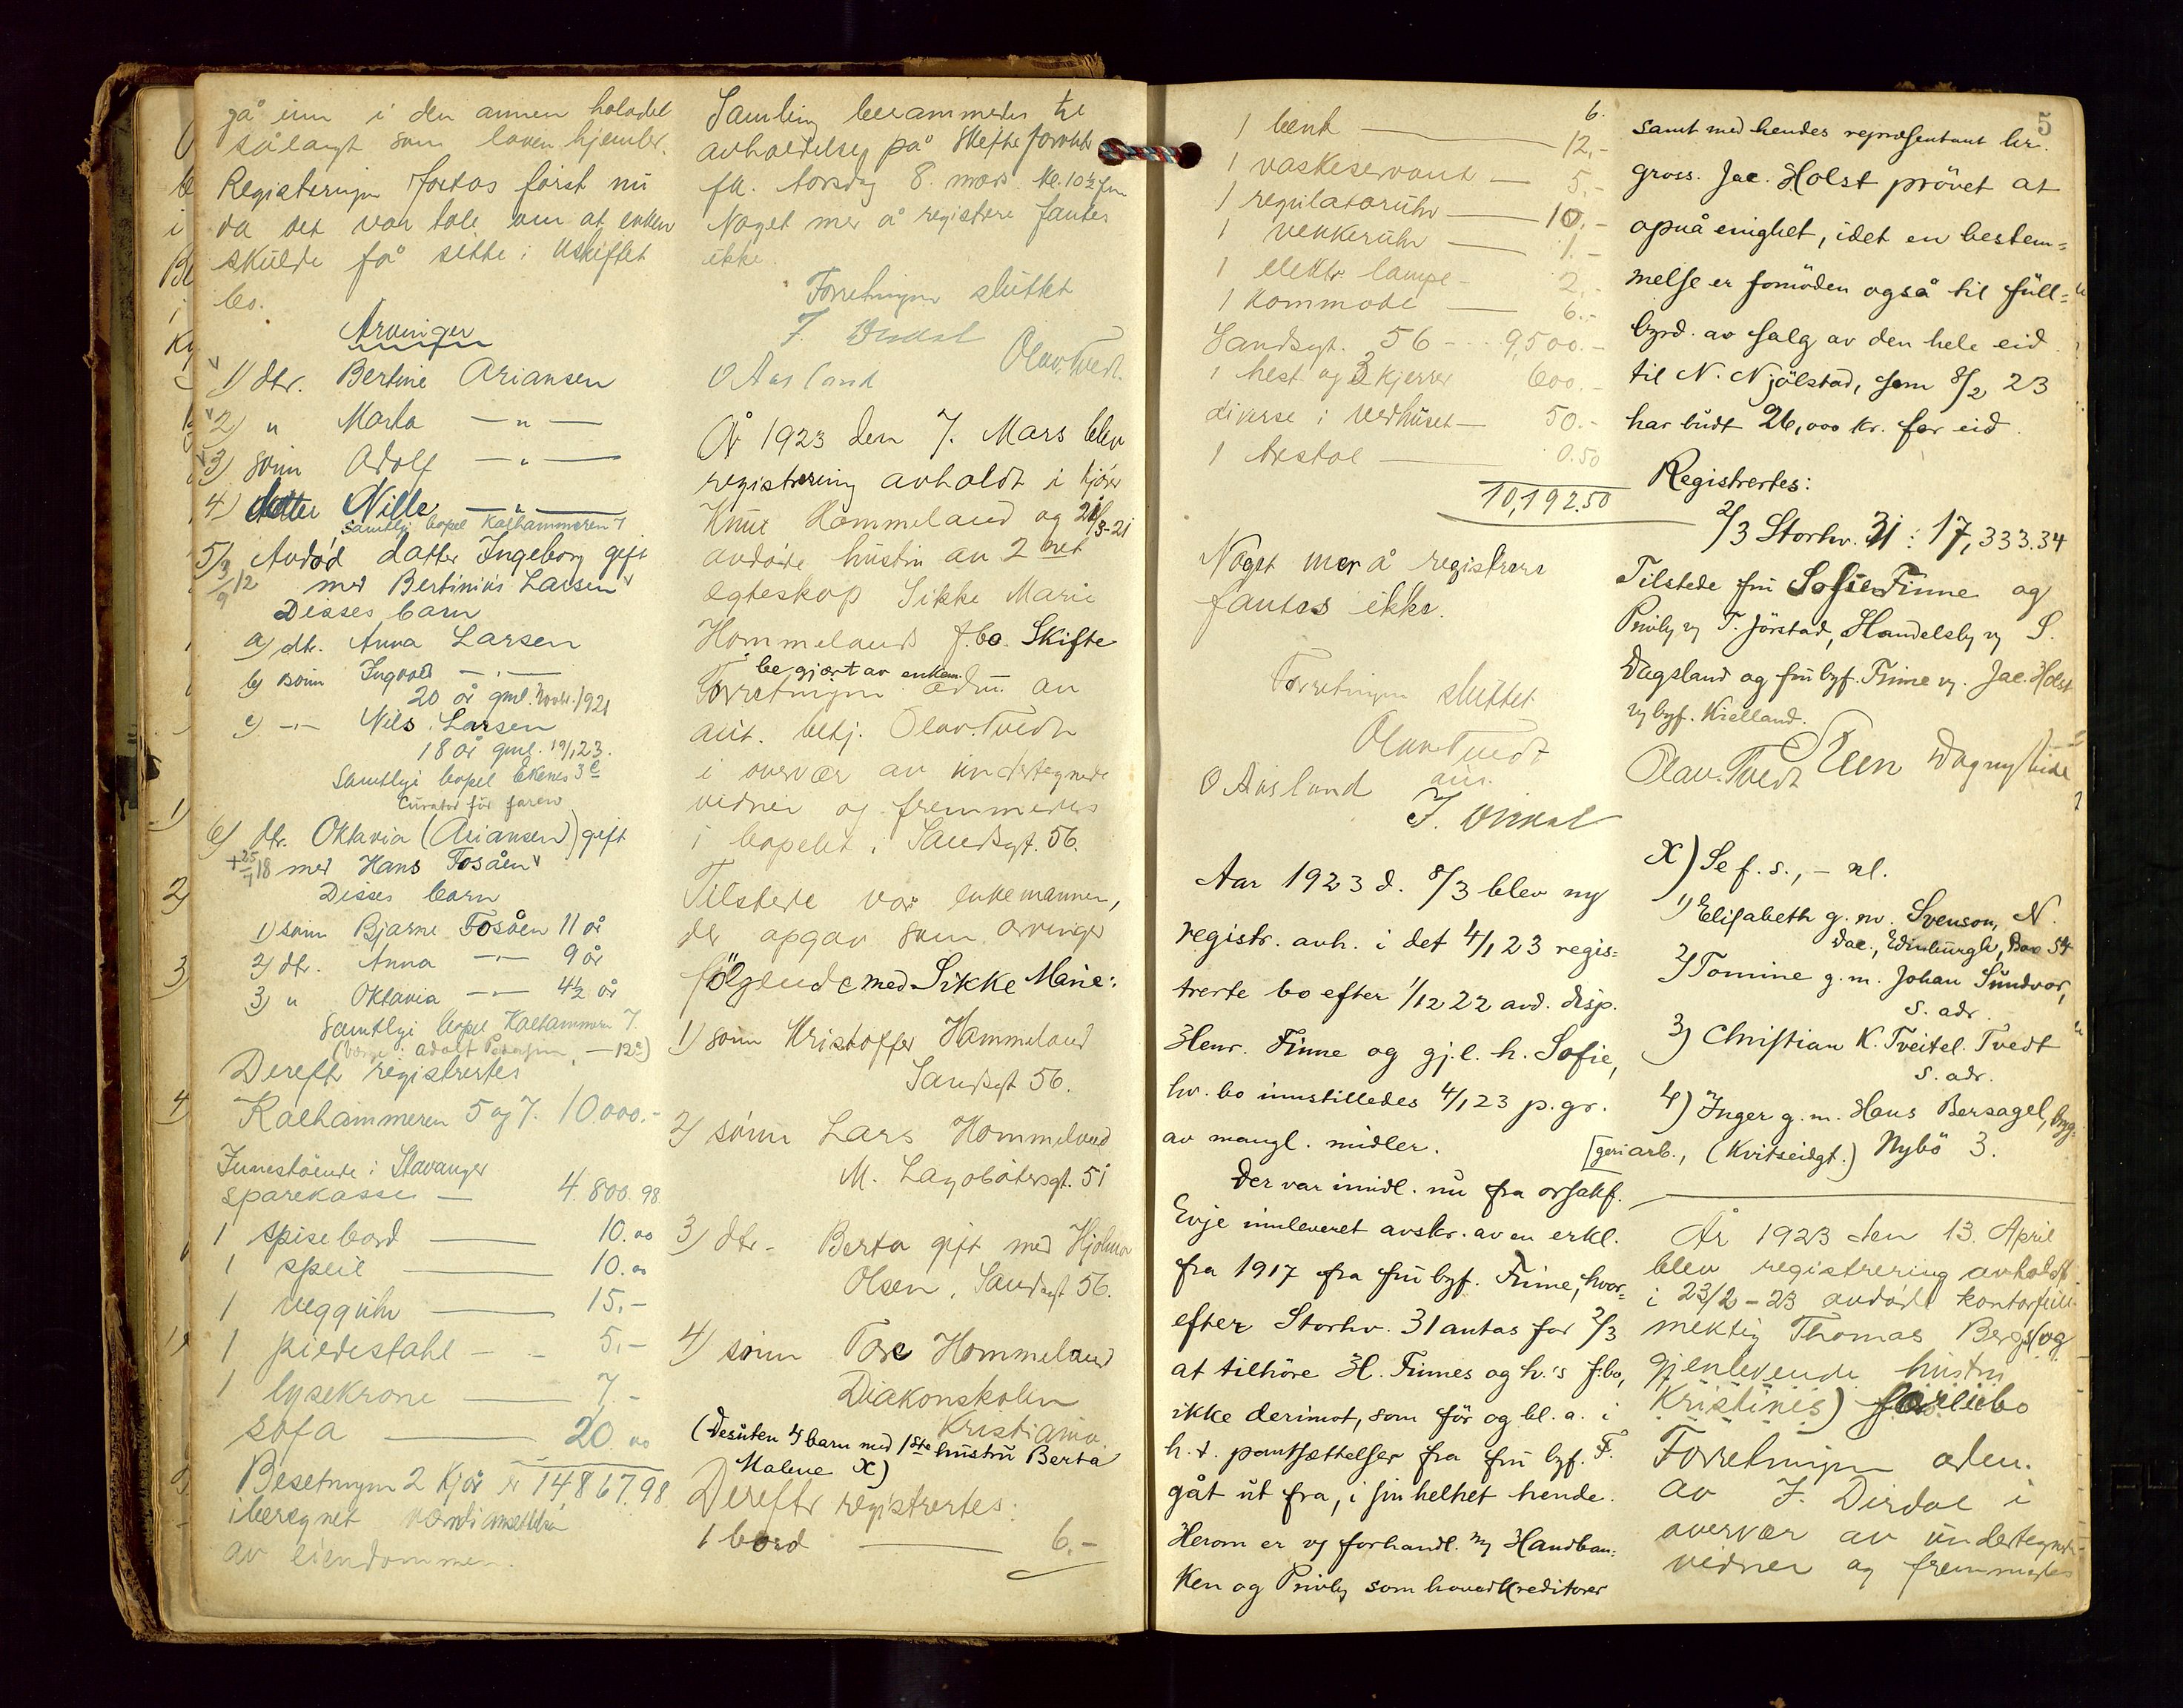 gå inn i den annen halvdel
sålangt som loven hjemler.
Registeringen foretas først nu
da det var tale om at enken
skulde få sitte i uskiftet
bo.
Arvinger
1) dtr. Bertine Ariansen
2) " Marta — " —
3) sønn Adolf — " —
4) datter Nille — " —
samtlig bopel Kalhammeren 7
5) Avdød datter Ingeborg gift
3/9 12 med Bertinius Larsen
Disses barn
a) dtr. Anna Larsen
b) sønn Ingvald — " —
20 år gml. Novbr. 1921
c) — " — Nils Larsen
18 år gml. 19/1 23.
Samtlige bopel Ekenes 3c
Curator for faren
6) dtr. Oktavia (Ariansen) gift
+ 25/7 18 med Hans Fosåen
Disses barn
1) sønn Bjarne Fosåen 11 år
2) dtr. Anna — " — 9 år
3) " Oktavia — " — 4½ år
samtlige bopel Kalhammeren 7.
Derefter registrertes
Kalhammeren 5 og 7. 10.000.-
Innestående i Stavanger
sparekasse — 4.800.98
1 spisebord — 10.00
1 speil — 10.00
1 veggühr — 15.-
1 piedestahl — 5.-
1 lysekrone — 7.-
sofa — 20.00
14867.98
Besetningen 2 kjør er
iberegnet
av eiendommen.
Samling berammedes til
avholdelse på skifteforvalter
fk. torsdag 8. mars kl. 10½ fm
Noget mer å registere fantes
ikke.
Forretningen sluttet
O Aasland Olav Tvedt.
År 1923 den 7. Mars blev
registrering avholdt i kjører
Knut Hommeland og 21/3-21
avdøde hustru av 2 net
egteskap Sikke Marie
Hommelands f.bo. Skifte
begjært av enkem.
Forretningen adm. av
aut. betj. Olav Tvedt
i overvær av undertegnede
vidner og fremmedes
i bopelet. Sandsgt. 56.
Tilstede var enkemannen,
der opgav som arvinger
følgende med Sikke Marie:
1) sønn Kristoffer Hammeland
Sandsgt 56.
2) sønn Lars Hommeland
M. Lagabøtersgt. 51
3) dtr. Berta gift med Hjalmar
Olsen, Sandsgt 56.
4) sønn Tore Hommeland
Diakonskolen
Kristiania.
(Desuten 4 barn med 1ste hustru Berta
Malene X)
Derefter registrertes:
1 bord — 6.-
6.
1 benk — 12,-
1 vaskeservant — 5,-
1 regulatoruhr — 10,-
1 vekkeruhr — 1.-
1 elektr lampe — 2.-
1 kommode — 6.-
Sandsgt. 56 — 9,500.-
1 hest og 3 kjerrer 600.-
diverse i vedhuset — 50.-
1 trestol — 0.50
10,192.50
Noget mer å registrere
fantes ikke.
Forretningen sluttet
Olav Tvedt
aut.
O Aasland
Aar 1923 d. 8/3 blev ny
registr. avh. i det 4/1 23 regis=
trerte bo efter 1/12 22 avd. disp.
Henr. Finne og gj.l. h. Sofie,
hv. bo innstilledes 4/1 23 p.gr.
av mangl. midler.
Der var imidl. nu fra orsakf.
Evje innleveret avskr. av en erkl.
fra 1917 fra fru byf. Finne, hvor=
efter Storhv. 31 antas for 2/3
at tilhøre H. Finnes og h.'s f.bo,
ikke derimot, som før og bl. a. i
h. t. pantsættelser fra fru byf. F.
gåt ut fra, i sin helhet hende.
Herom er vy forhandl. m/ Handban=
ken og Privby som hovedkreditorer
5
samt med hendes repræsentant hr.
gross. Jac. Holst prøvet at
opnå enighet, idet en bestem=
melse er fornöden også til full=
byrd. av salg av den hele eid.
til N. Njölstad, som 8/2 23
har budt 26,000 kr. for eid.
Registrertes:
2/3 Storhv. 31 : 17,333.34
Tilstede fru Sofie Finne og
Privby vy T. Jörstad, Handelsby vy S.
Dagsland og fru byf. Finne vy. Jac. Holst
vy byf. Kielland.
Olav Tvedt Steen
X) Se f. s., – nl.
1) Elisabeth g. m. Svenson, N.
Dac., Edinburgh, Box 54
2) Tomine g. m. Johan Sundvor,
s. adr.
3) Christian K. Tveitel. Tvedt
s. adr.
4) Inger g. m. Hans Bersagel, byg=
[geriarb., (Kvitseidgt.) Nybö 3.
År 1923 den 13. April
blev registrering avholdt
i 23/2-23 avdøde kontorfull=
mektig Thomas Berg's (og
gjenlevende hustru
Kristinis) fællesbo
Forretningen adm.
av J. Dirdal i
overvær av undertegnede
vidner og fremmedes